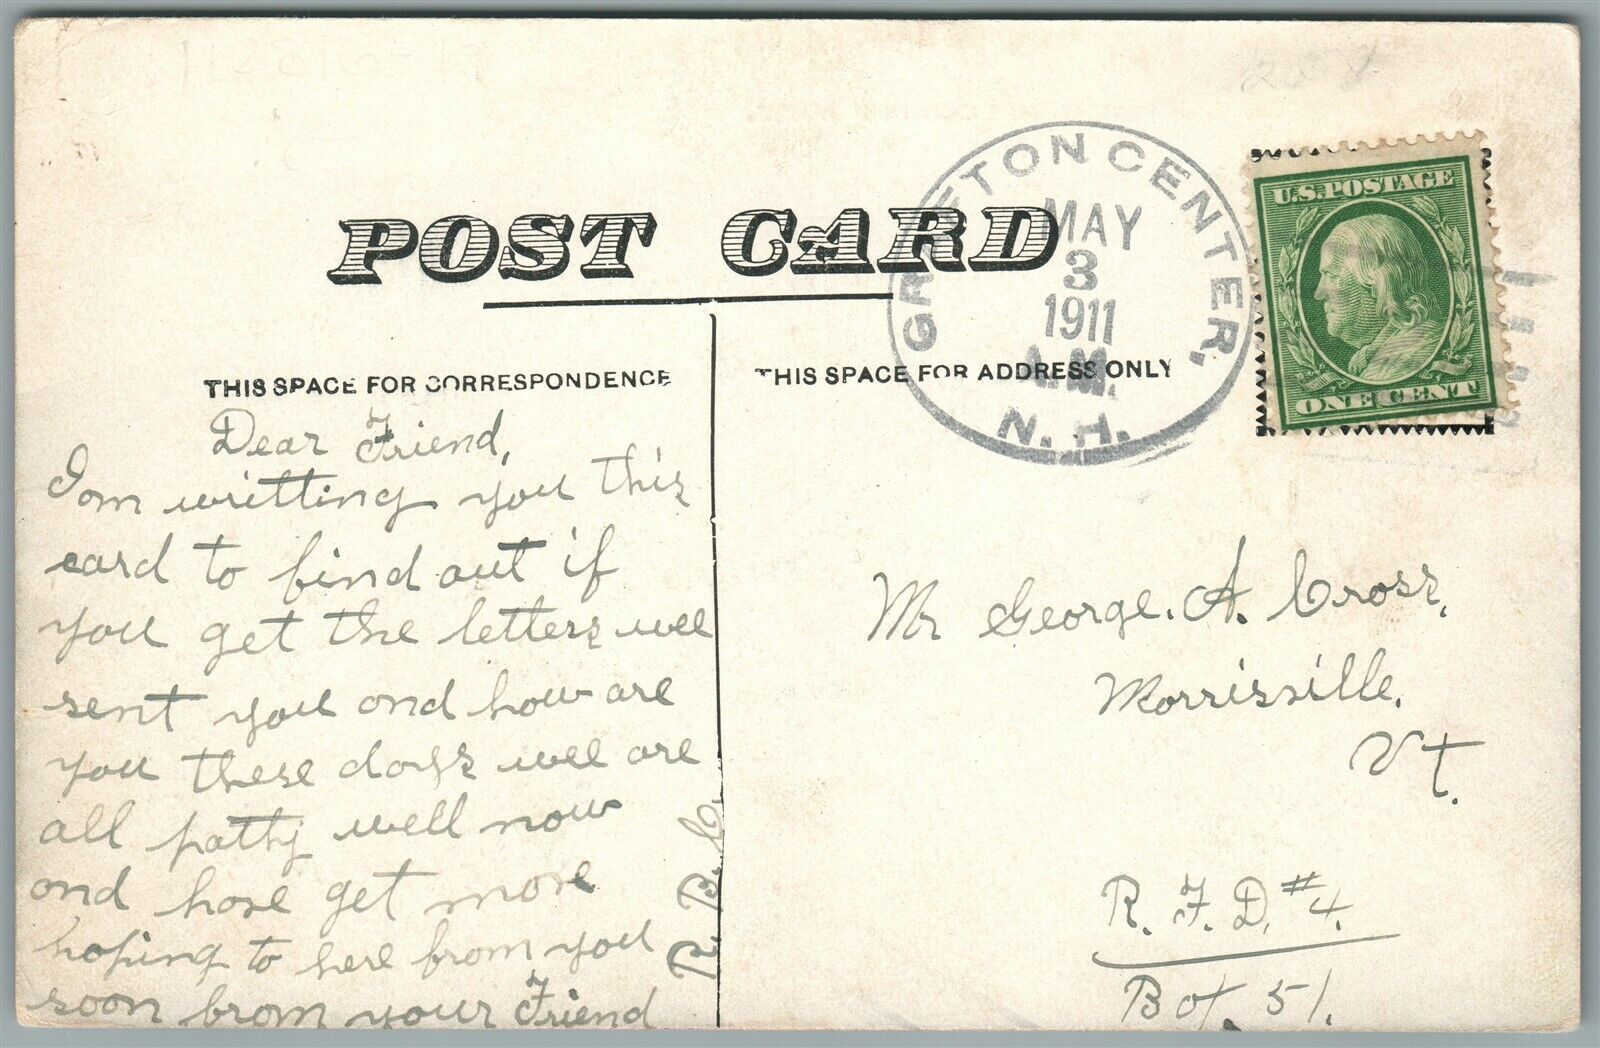 POST CARD
THIS SPACE FOR CORRESPONDENCE
THIS SPACE FOR ADDRESS ONLY
GRAFTON CENTER,
MAY
3
1911
A.M.
N. H.
U.S. POSTAGE
ONE CENT
Dear Friend,
I am writting you this
card to find out if
you get the letters wee
sent you and how are
you these days wee are
all patty well now
and have get more
hoping to here from you
soon from your Friend
R. B. C.
Mr George. A. Cross,
Morrisville.
Vt.
R. F. D. #4.
Box. 51.